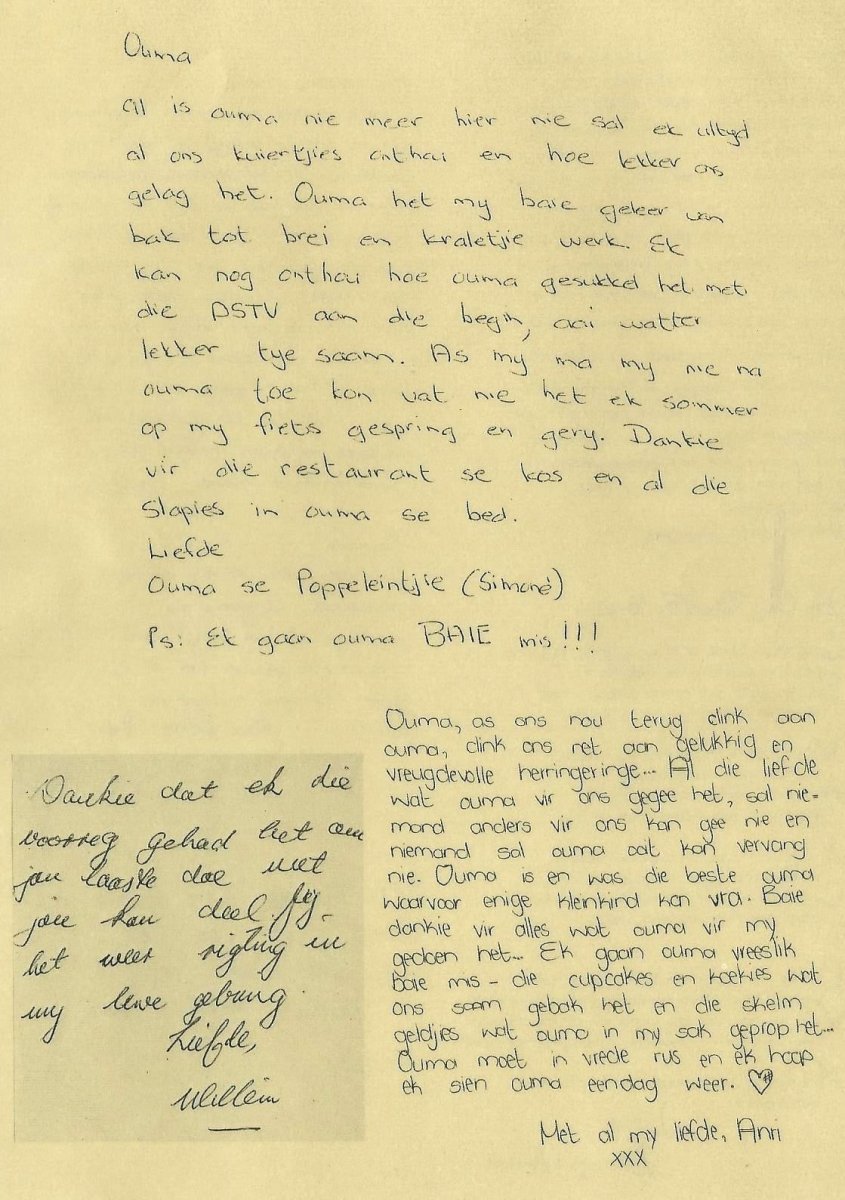 Ouma
al is ouma nie meer hier nie sal ek altyd
al ons kuiertjies onthou en hoe lekker ons
gelag het. Ouma het my baie geleer van
bak tot brei en kraletjie werk. Ek
kan nog onthou hoe ouma gesukkel het met
die DSTV aan die begin, aai watter
lekker tye saam. As my ma my nie na
ouma toe kon vat nie het ek sommer
op my fiets gespring en gery. Dankie
vir die restaurant se kos en al die
Slapies in ouma se bed.
Liefde
Ouma se Poppeleintjie (Simoné)
Ps: Ek gaan ouma BAIE mis!!!
Dankie dat ek die
voorreg gehad het om
jou laaste dae met
jou kon deel. Jy
het weer rigting in
my lewe gebring.
Liefde,
Willem
Ouma, as ons nou terug dink aan
ouma, dink ons net aan gelukkig en
vreugdevolle herringeringe... Al die liefde
wat ouma vir ons gegee het, sal nie-
mand anders vir ons kan gee nie en
niemand sal ouma ooit kan vervang
nie. Ouma is en was die beste ouma
waarvoor enige kleinkind kan vra. Baie
dankie vir alles wat ouma vir my
gedoen het... Ek gaan ouma vreeslik
baie mis - die cupcakes en koekies wat
ons saam gebak het en die skelm
geldjies wat ouma in my sak geprop het...
Ouma moet in vrede rus en ek hoop
ek sien ouma eendag weer. ♡
Met al my liefde, Anri
XXX